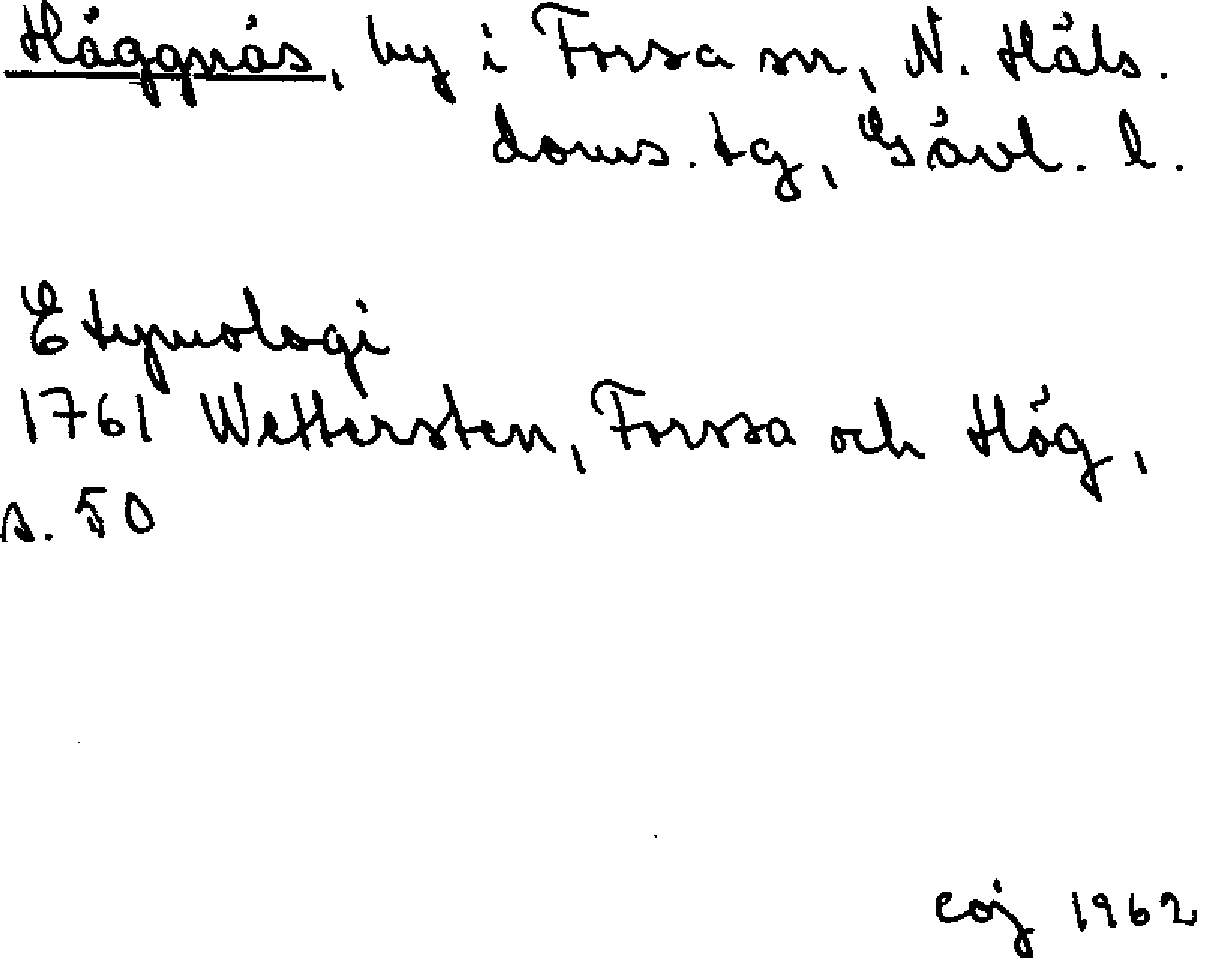 Häggnäs, by i Forsa sn, N. Häls.
doms. tg, Gävl. l.
Etymologi
1761 Wettersten, Forssa och Hög,
s. 50
coj 1962